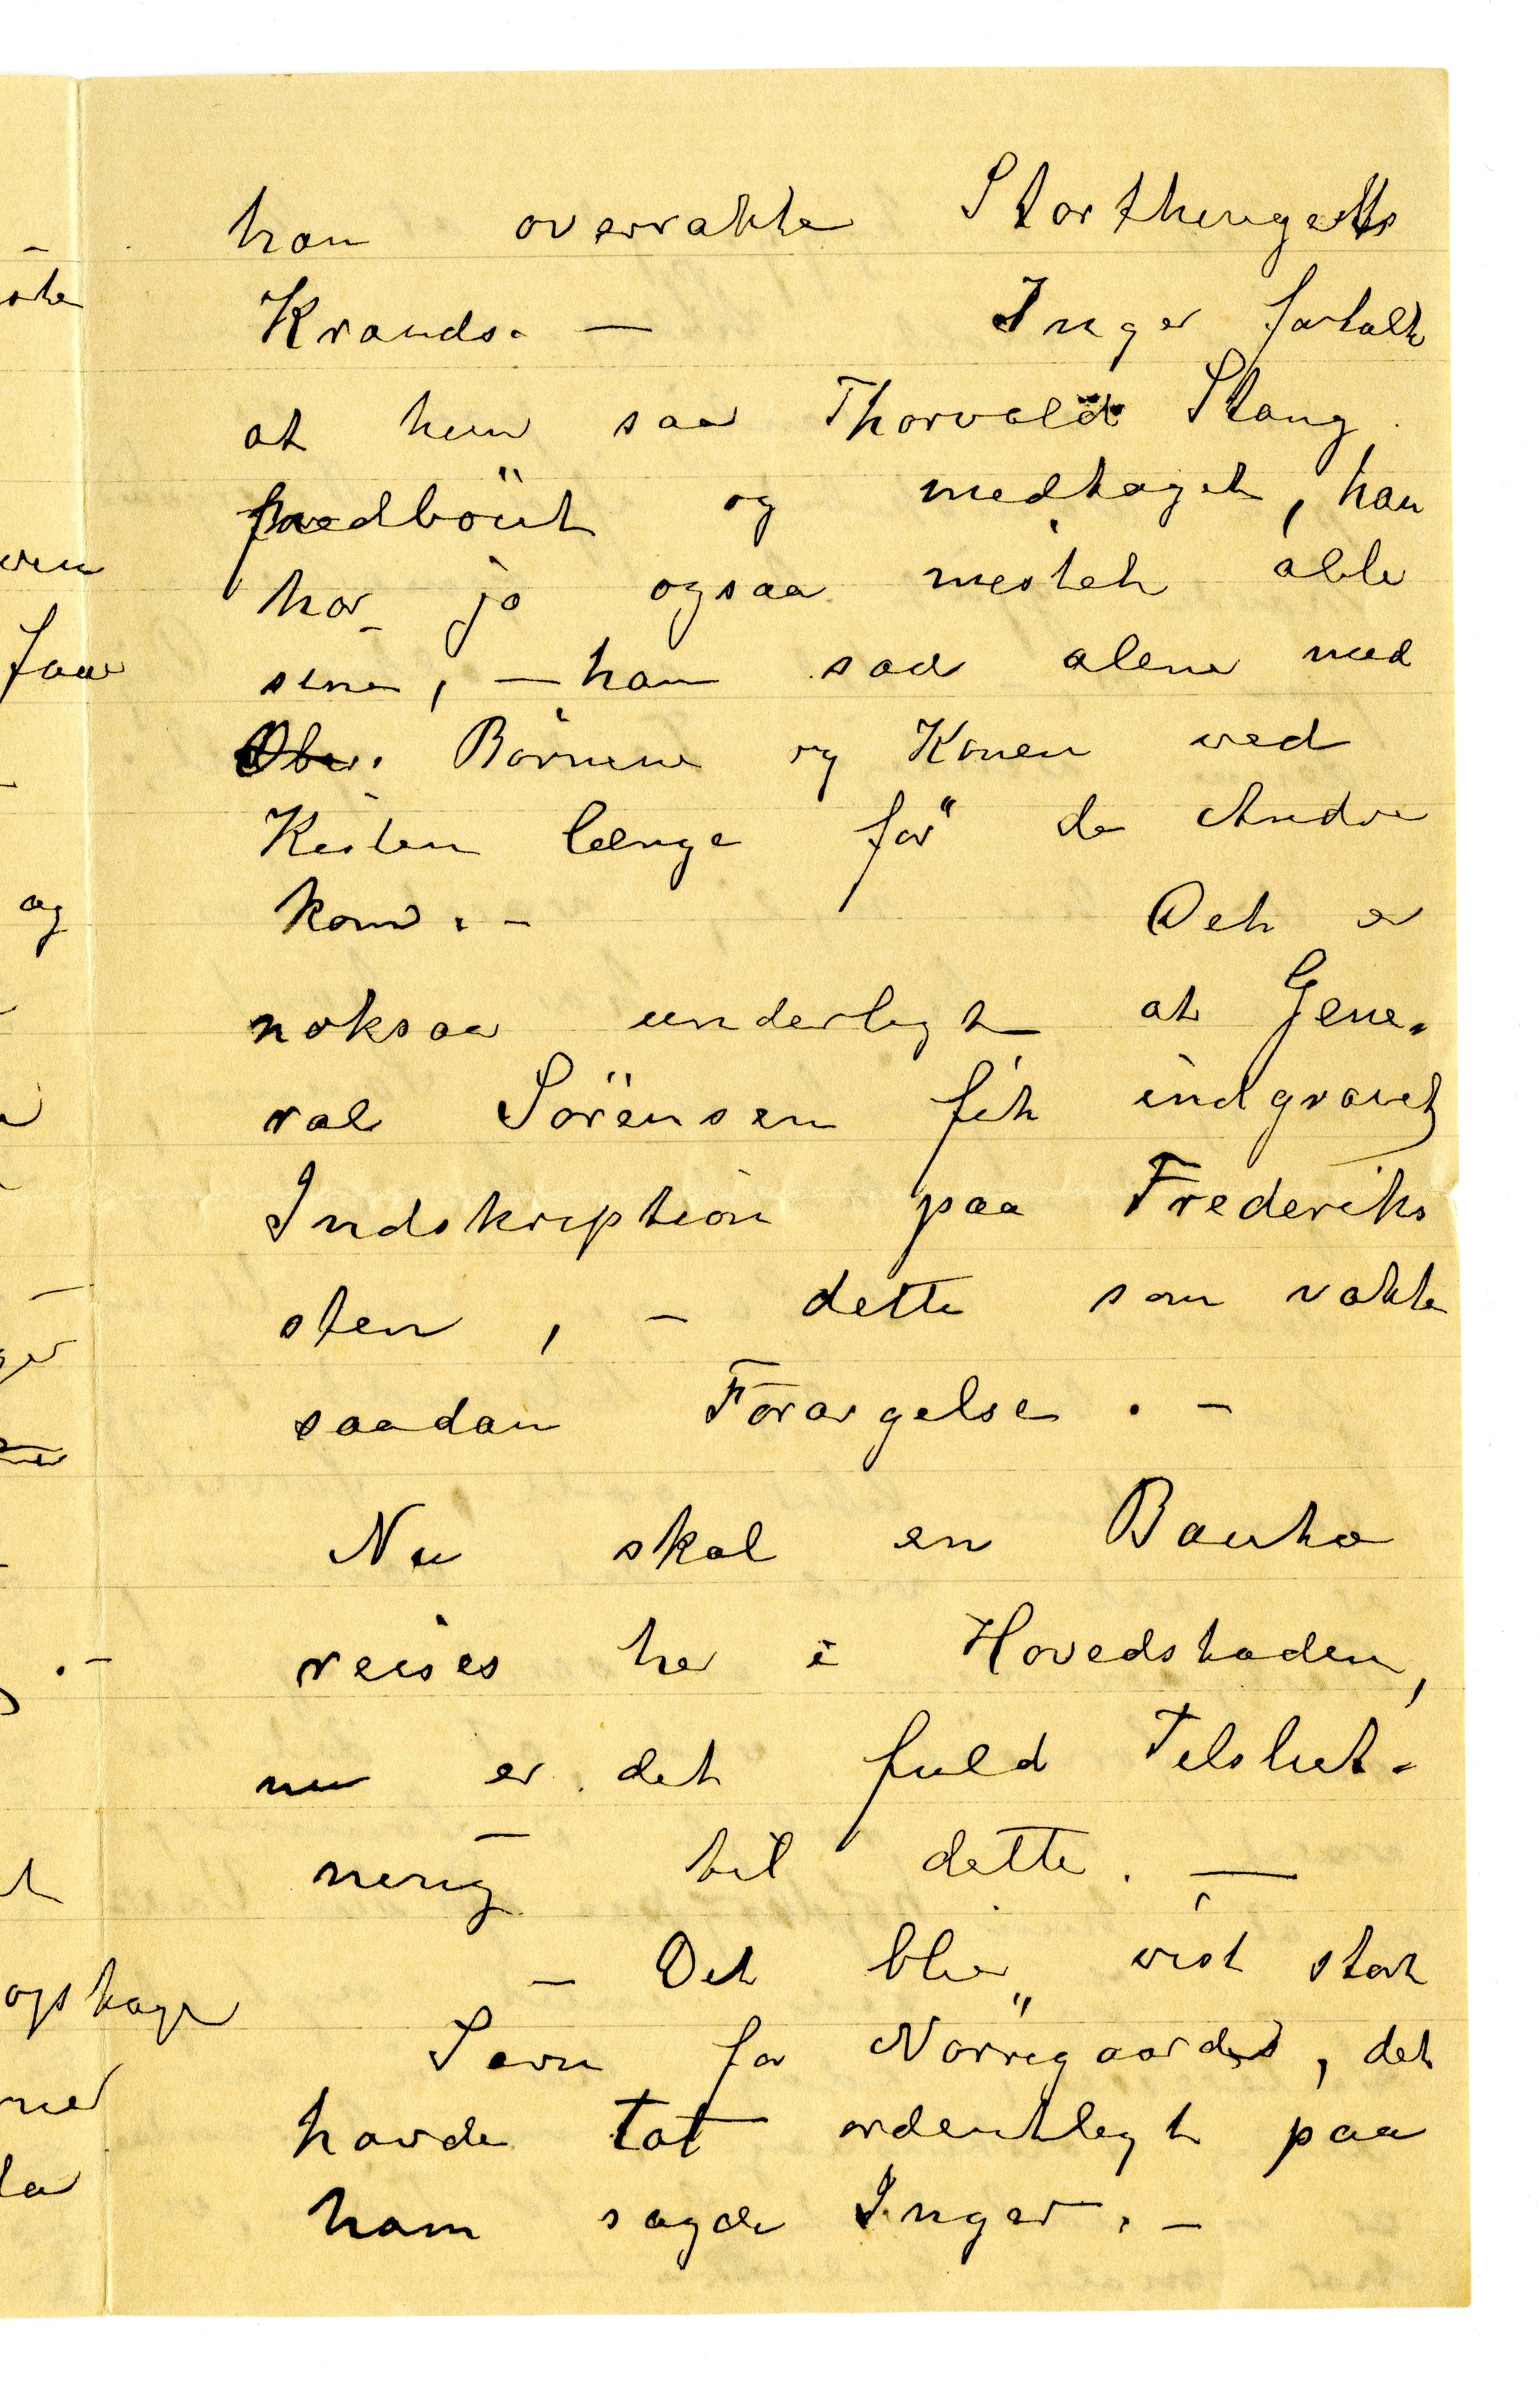 han overrakte Storthingets
Krands. — Inger fortalte
at hun saa Thorvald Stang
nedböiet og medtaget, han
har jo ogsaa mistet alle
sine, — han sad alene med
Börnene og Konen ved
Kisten længe för de Andre
kom. — Det er
noksaa underligt at Gene-
ral Sörensen fik indgravet
Indskription paa Frederiks
sten, — dette som vakte
saadan Forargelse. —
Nu skal en Bauta
reises her i Hovedstaden,
nu er det fuld Tilslut-
ning til dette. —
— Det blir vist stort
Savn for Nörregaards, det
havde tat ordentligt paa
ham sagde Inger. —